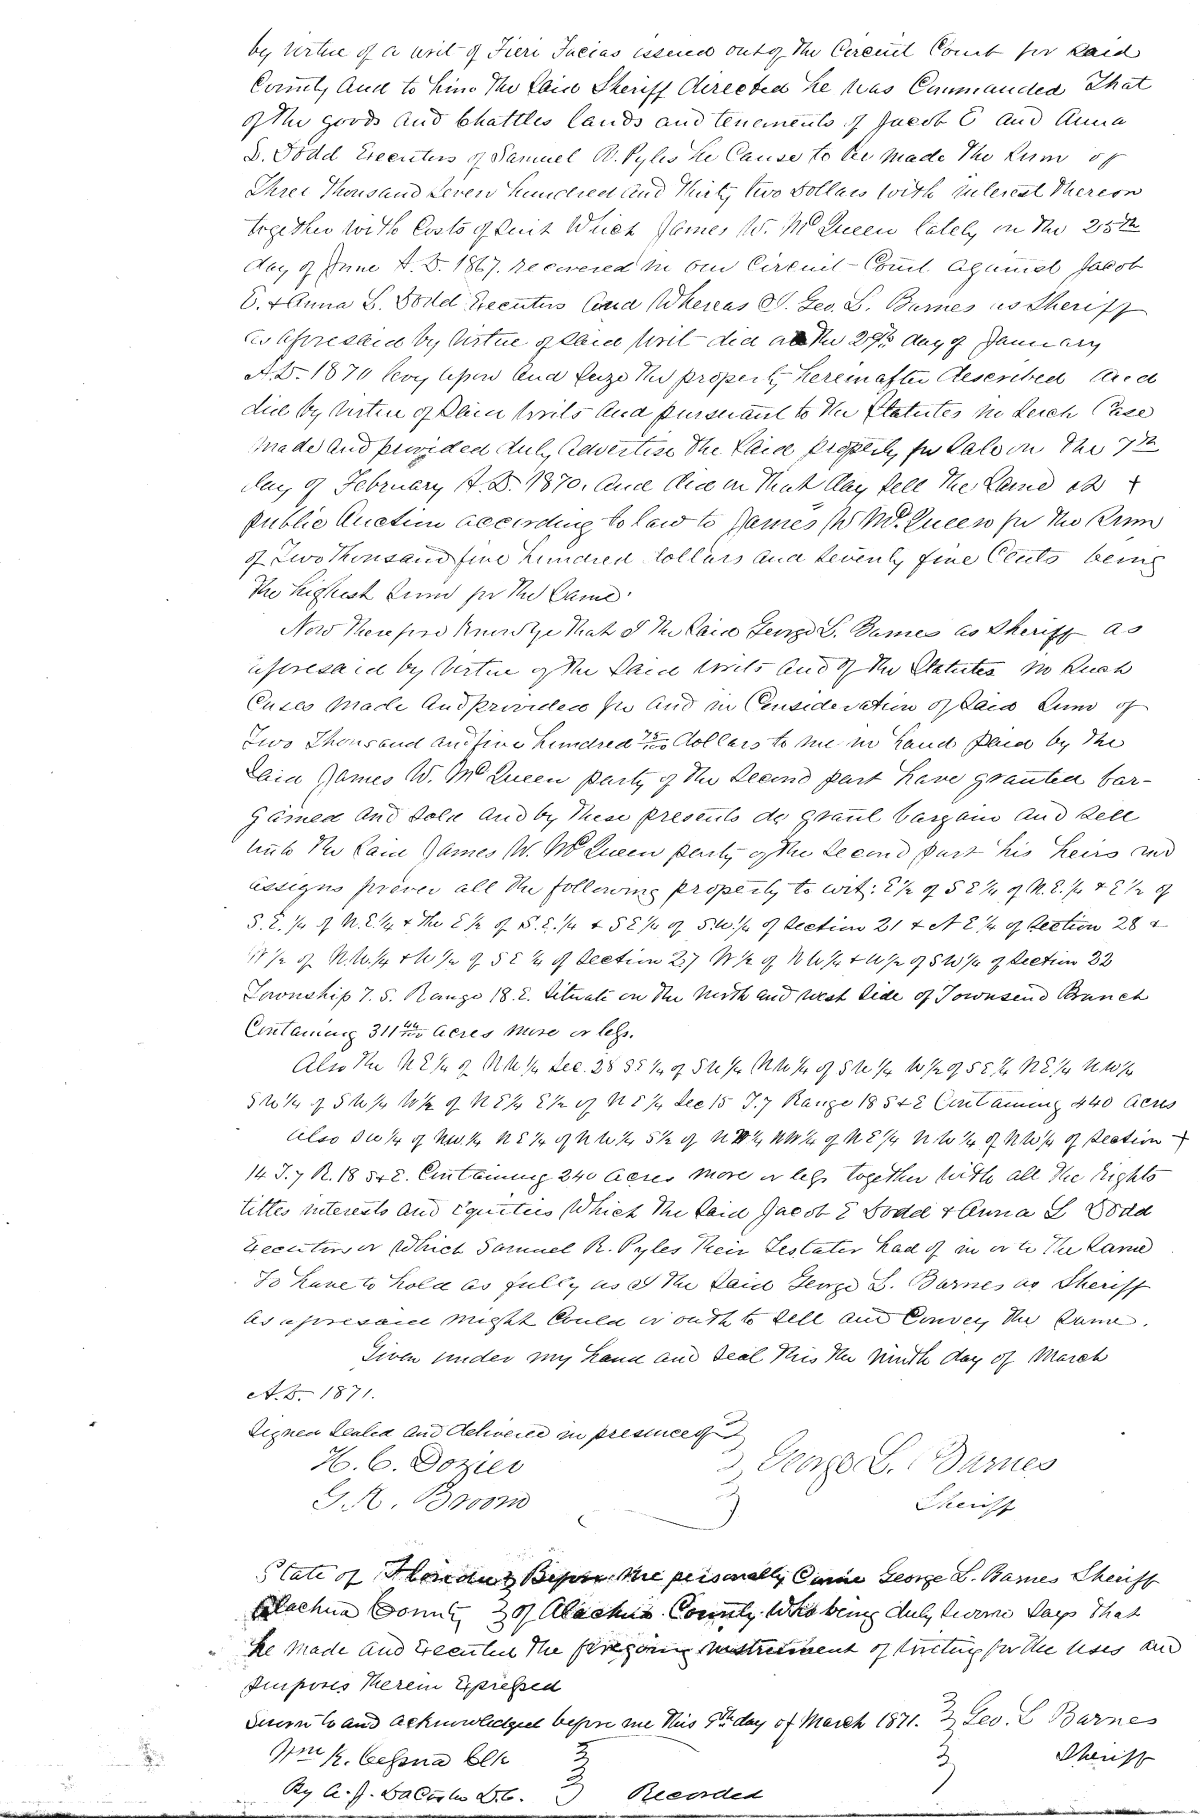 by virtue of a writ of Fieri Facias issued out of the Circuit Court for said
County and to him the said Sheriff directed he was Commanded That
of the goods and Chattles lands and tenements of Jacob E and Anna
L. Dodd Executors of Samuel R. Pyles he Cause to be made the sum of
Three Thousand Seven hundred and thirty two Dollars with interest thereon
together with Costs of suit Which James W. McQueen lately on the 25th
day of June A.D. 1867. recovered in our Circuit Court against Jacob
E. & Anna L. Dodd Executors and Whereas I. Geo. L. Barnes as Sheriff
as aforesaid by virtue of said Writ did on the 29th day of January
A.D. 1870 levy upon and seize the property hereinafter described and
did by virtue of said writs and pursuant to the Statutes in such Case
made and provided duly advertise the said property for sale on the 7th
day of February A.D. 1870. and did on that day sell the same at +
public Auction according to law to James W McQueen for the sum
of Two thousand five hundred dollars and seventy five Cents being
the highest sum for the same.
Now therefore Know ye that I the said George L. Barnes as Sheriff as
aforesaid by virtue of the said writs and of the Statutes in such
Cases made and provided for and in Consideration of said sum of
Two Thousand and five hundred 75/100 dollars to me in hand paid by the
said James W. McQueen party of the second part have granted bar-
gained and sold and by these presents do grant bargain and sell
unto the said James W. McQueen party of the second part his heirs and
assigns forever all the following property to wit: E½ of S E¼ of N.E.¼ & E½ of
S.E.¼ of N.E¼ & the E½ of S.E.¼ & S E¼ of S.W.¼ of Section 21 & N E¼ of Section 28 &
W½ of N.W.¼ & W½ of S E¼ of Section 27 W½ of N W¼ & W½ of S W¼ of Section 22
Township 7. S. Range 18. E. situate on the north and west side of Townsend Branch
Containing 311 44/100 acres more or less.
Also the N E¼ of N W¼ Sec. 28 S E¼ of S W¼ N W¼ of S W¼ W½ of S E¼ N E¼ N W¼
S W¼ of S W¼ W½ of N E¼ E½ of N E¼ Sec 15 T.7 Range 18 S & E Containing 440 acres
Also S W¼ of N W¼ N E¼ of N W¼ S½ of N W¼ N W¼ of N E¼ N W¼ of N W¼ of Section +
14 T.7 R. 18 S & E. Containing 240 acres more or less together with all the rights
titles interests and equities Which the said Jacob E Dodd & Anna L Dodd
Executors or Which Samuel R. Pyles their Testator had of in or to the same
To have to hold as fully as I the said George L. Barnes as Sheriff
as aforesaid might Could or outh to sell and Convey the same.
Given under my hand and seal this the ninth day of March
A.D. 1871.
Signed sealed and delivered in presence of
H. C. Dozier George L. Barnes
G. K. Broom Sheriff
State of Florida Before me personally Came George L. Barnes Sheriff
Alachua County of Alachua County Who being duly sworn says that
he made and Executed the foregoing instrument of writing for the uses and
purposes therein Expressed
Sworn to and acknowledged before me this 9th day of March 1871. Geo. L Barnes
Wm K. Cessna Clk Sheriff
By A. J. DaCosta D.C. Recorded